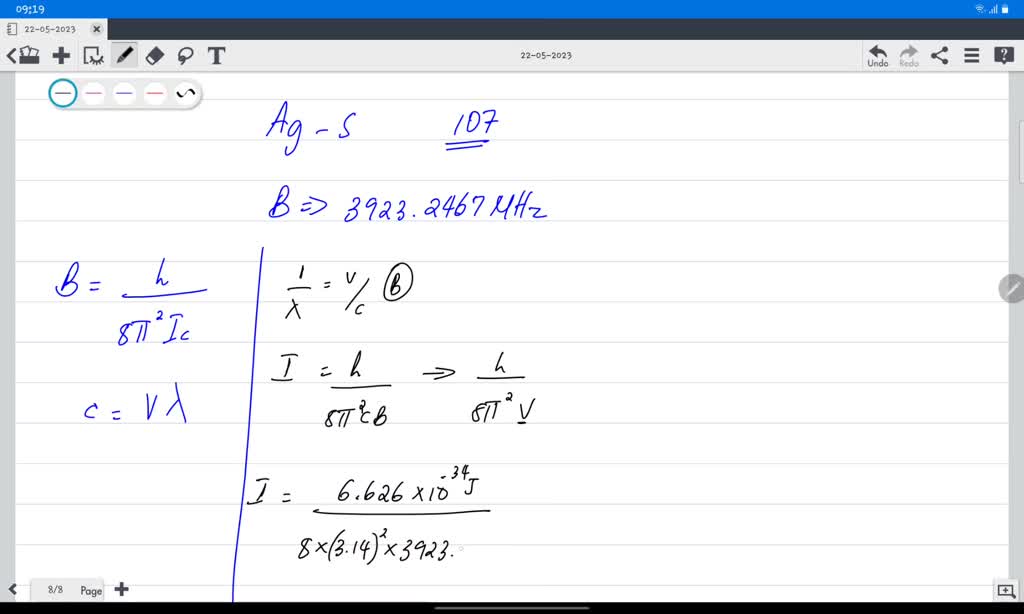 09:19
22-05-2023
T
22-05-2023
Undo
Redo
Ag - S 107
B ⇒ 3923.2467 MHz
B = h / 8π² Ic
c = νλ
1/λ = ν/c (B)
I = h / 8π²cB → h / 8π² ν
I = 6.626 × 10⁻³⁴ J / 8 × (3.14)² × 3923.
8/8 Page